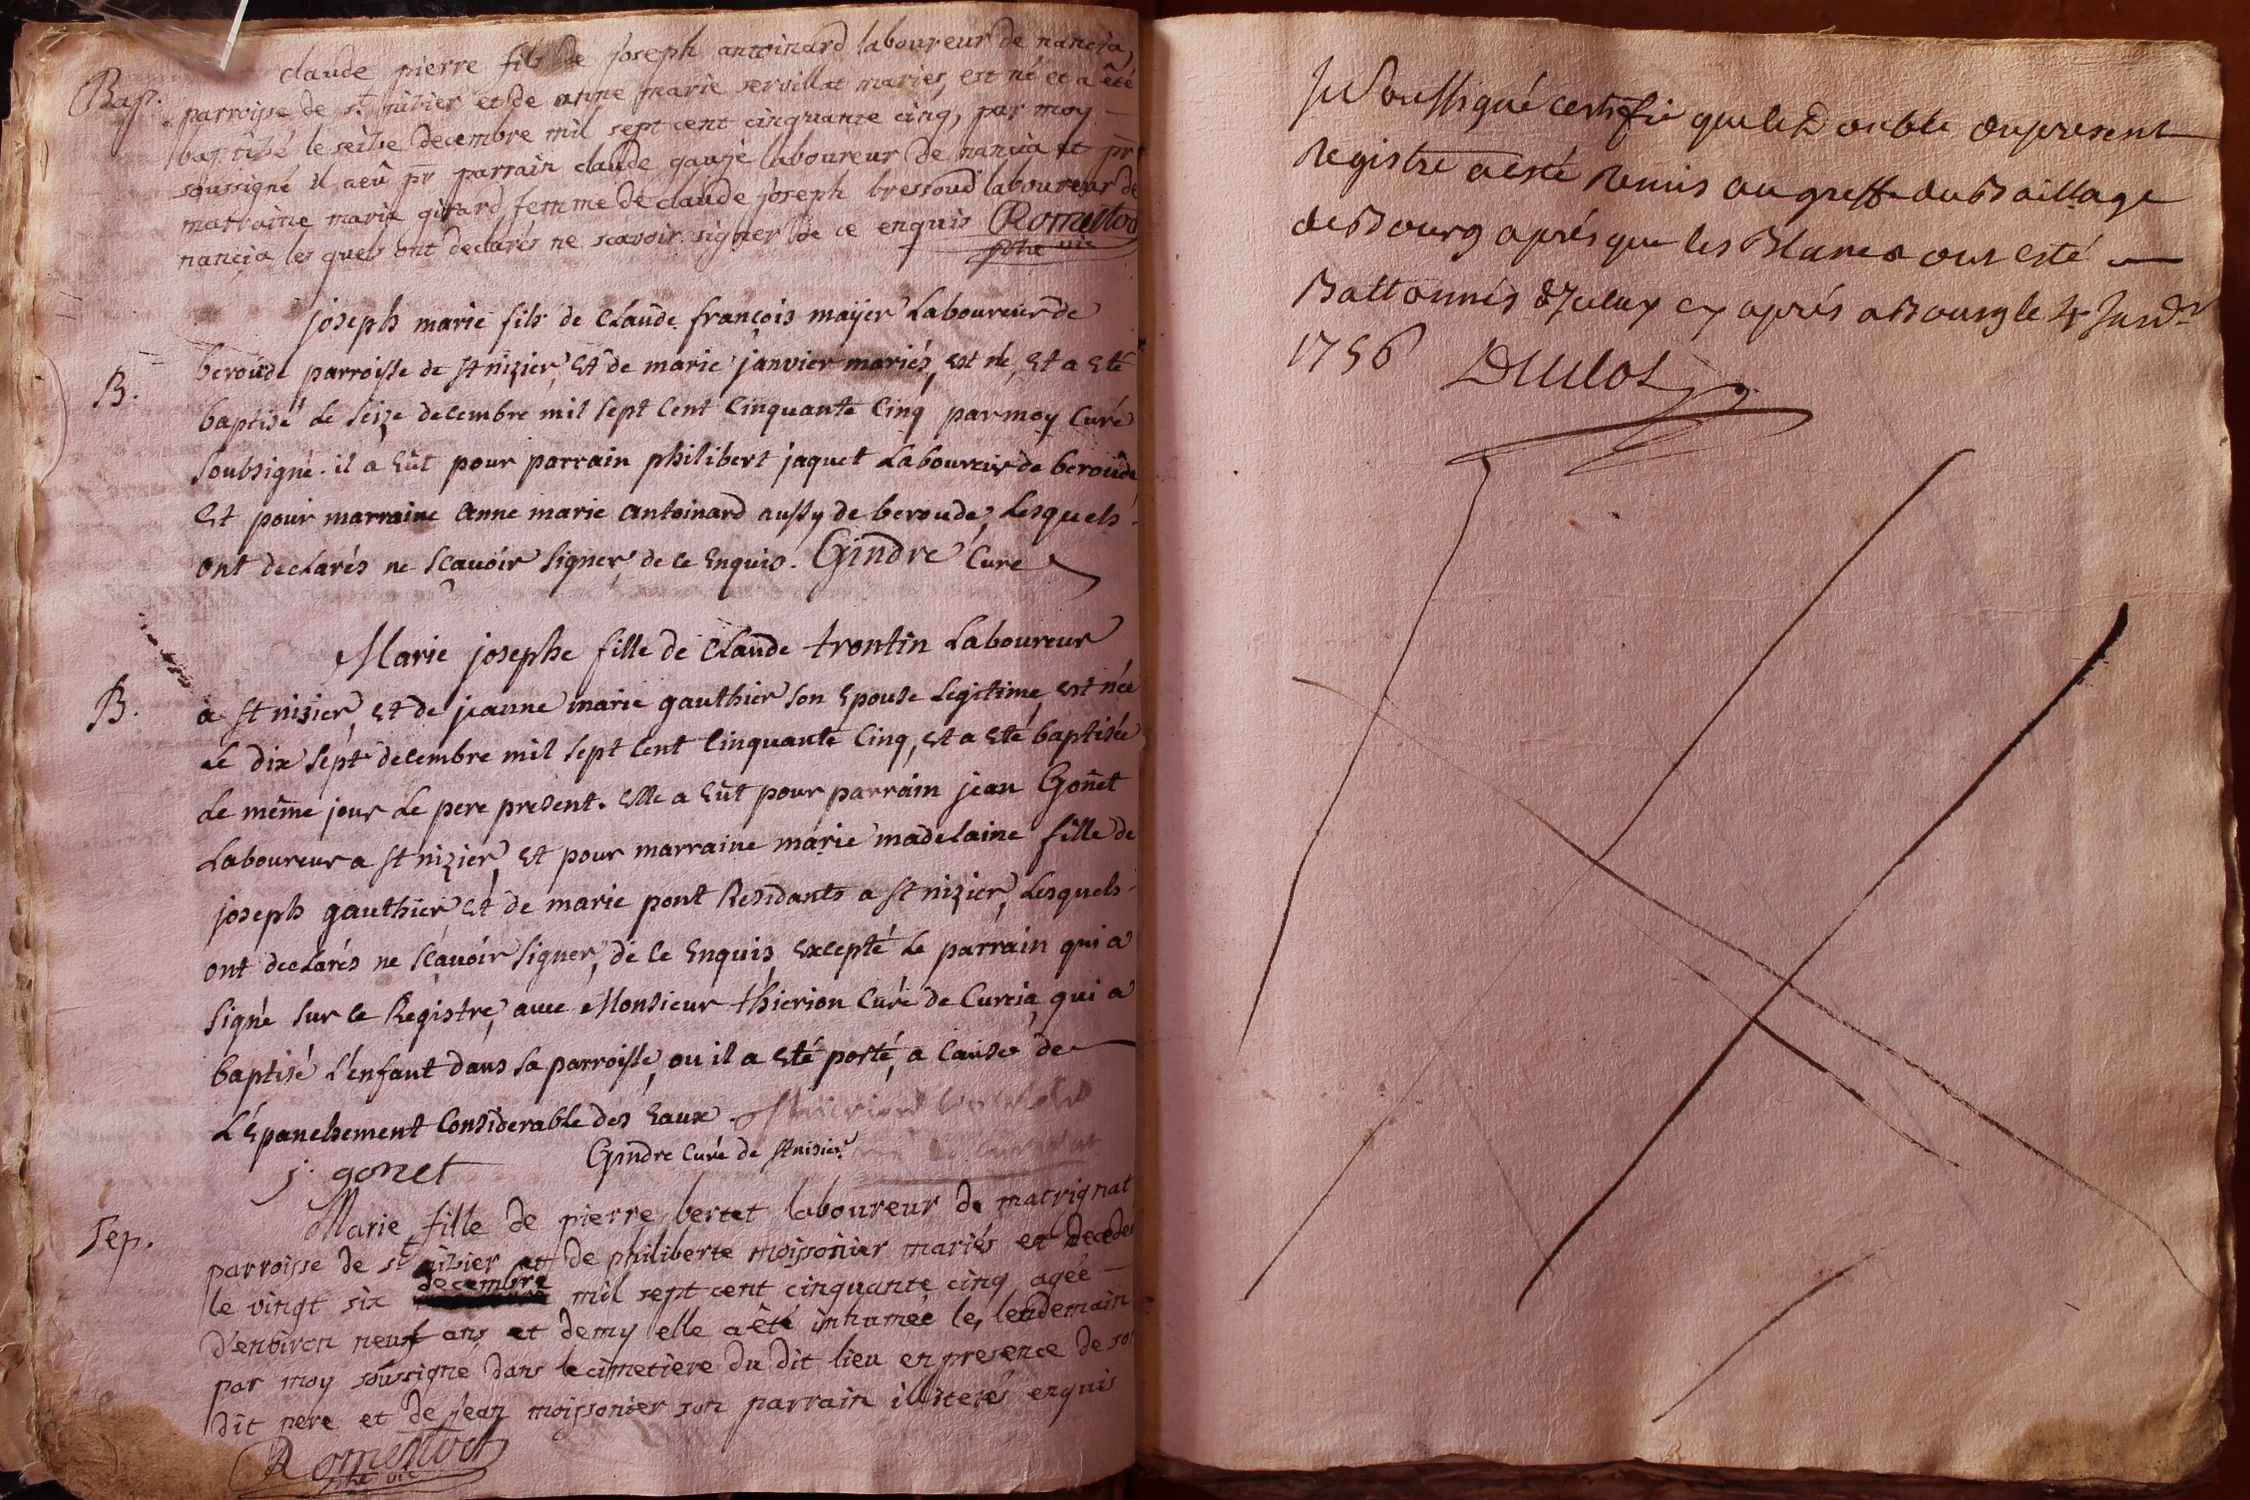 Bap.
claude pierre fils de joseph antoinard laboureur de nancia,
parroisse de st nizier et de anne marie servillat mariés, est né et a êté
baptisé le seize decembre mil sept cent cinquante cinq, par moy —
soussigné il a eû pr parrain claude gauge laboureur de nancia et pr
matraine marie girard femme de claude joseph bressoud laboureur de
nancia les quels ont declarés ne scavoir signer de ce enquis Romestod
ptre vic
B.
joseph marie fils de Claude françois mayer Laboureur de
beroude parroisse de st nizier, Et de marie janvier mariés, est né, Et a Eté
baptisé Le seize decembre mil sept Cent Cinquante Cinq par moy Curé
soubsigné. il a Eüt pour parrain philibert jaquet Laboureur de beroude,
Et pour marraine anne marie antoinard aussy de beroude, Lesquels
ont declarés ne sçauoir signer, de ce Enquis. Gindre Curé
B.
Marie josephe fille de Claude trontin Laboureur
a st nizier, Et de jeanne marie gauthier son Epouse Legitime, est née
Le dix sept decembre mil sept Cent Cinquante Cinq, Et a Eté baptisée
Le même jour Le pere present. Elle a Eüt pour parrain jean Gonet
Laboureur a st nizier, Et pour marraine marie madelaine fille de
joseph gauthier Et de marie pont Residants a st nizier, Lesquels
ont declarés ne sçauoir signer, de ce Enquis, Excepté Le parrain qui a
signé sur ce Registre, avec Monsieur thierion Curé de Curcia, qui a
baptisé L'enfant dans sa parroisse, ou il a Eté porté, a Cause de —
L'Epanchement Considerable des Eaux.
Gindre Curé de st nisier
j. gonet
Sep.
Marie fille de pierre bertet laboureur de matrignat
parroisse de st nizier et de philiberte moissonier mariés et decedee
decembre
le vingt six mil sept cent cinquante cinq agée —
d'environ neuf ans et demy elle a êté inhumée le lendemain
par moy soussigné dans le cimetiere du dit lieu en presence de son
dit pere et de jean moissonier son parrain illiterés enquis
Romestod
ptre vic
Je Soussigné certifie que le Double du present
Registre a esté Remis au greffe du Baillage
de Bourg aprés que les Blancs ont esté —
Battonnés et celuy cy aprés a Bourg le 4
1756
Duclos